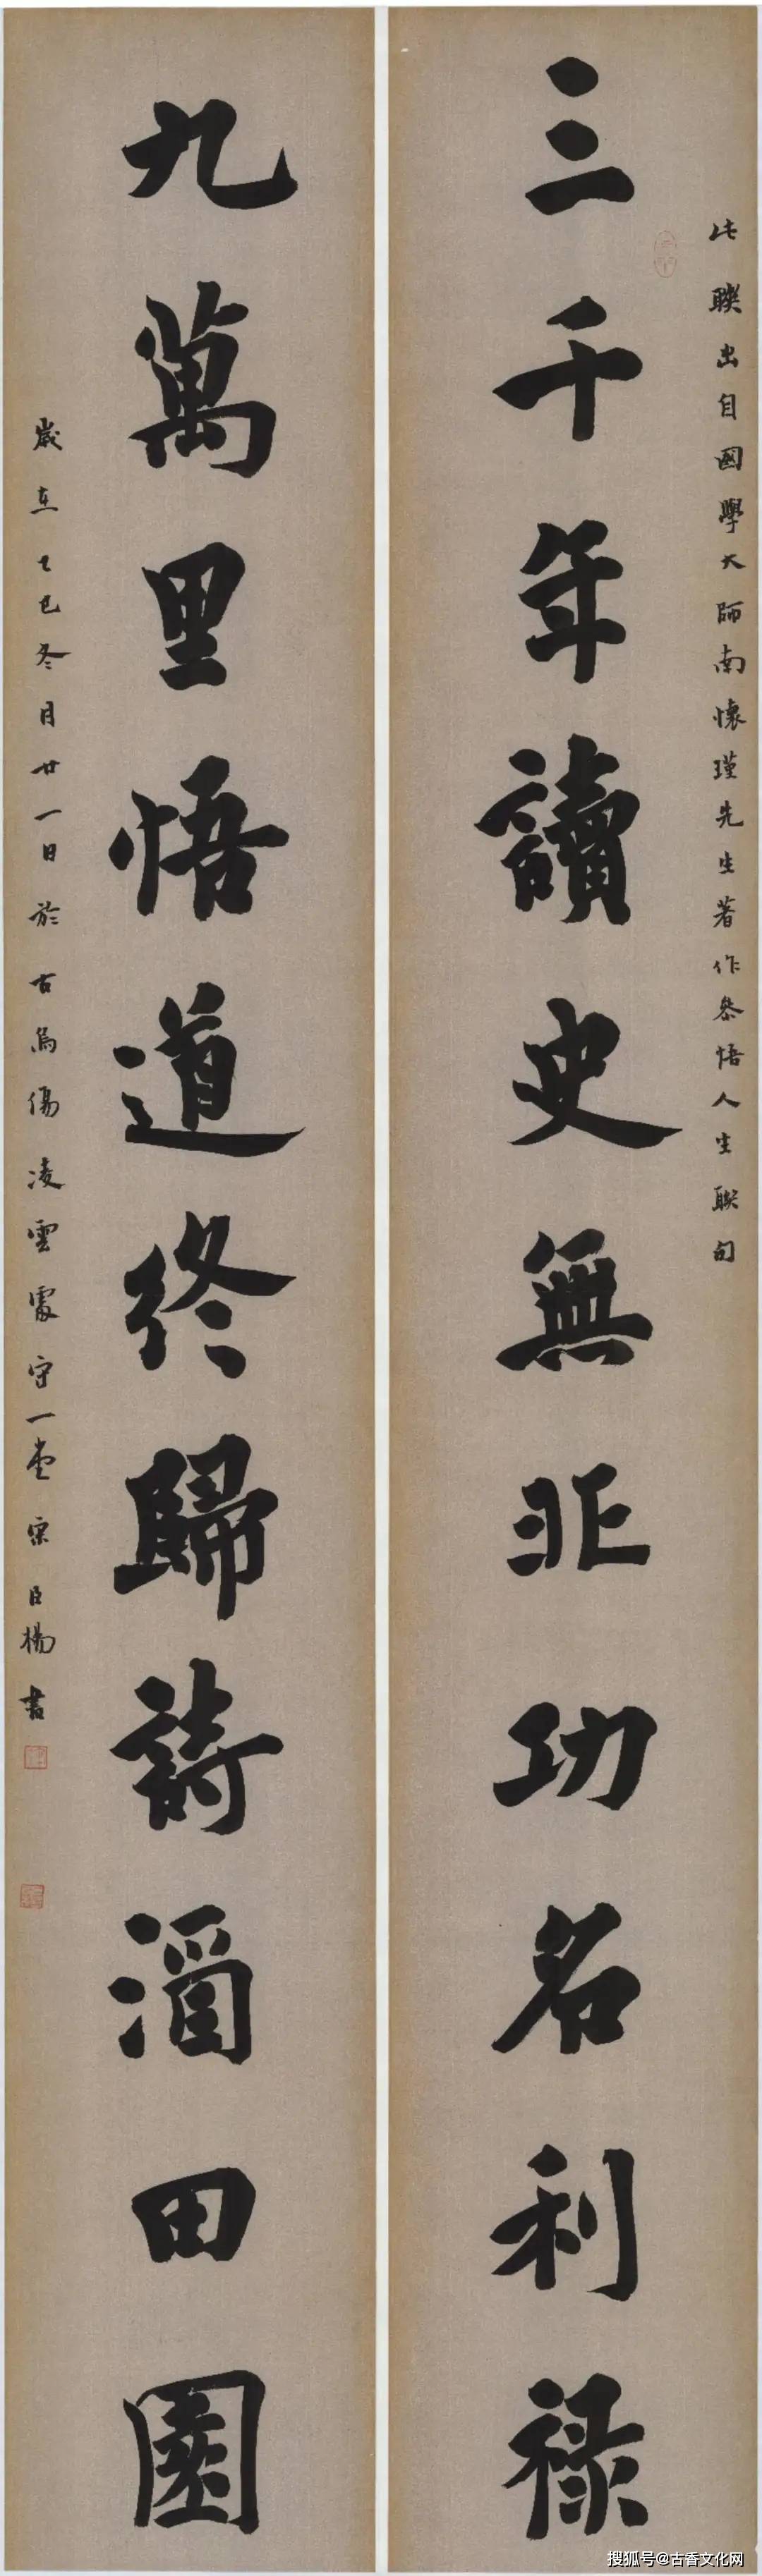 此聯出自國學大師南懷瑾先生著作參悟人生聯句
三千年讀史無非功名利祿
九萬里悟道終歸詩酒田園
歲在乙巳冬月廿一日於古烏傷凌雲處守一堂宋楊書
搜狐号@古香文化网